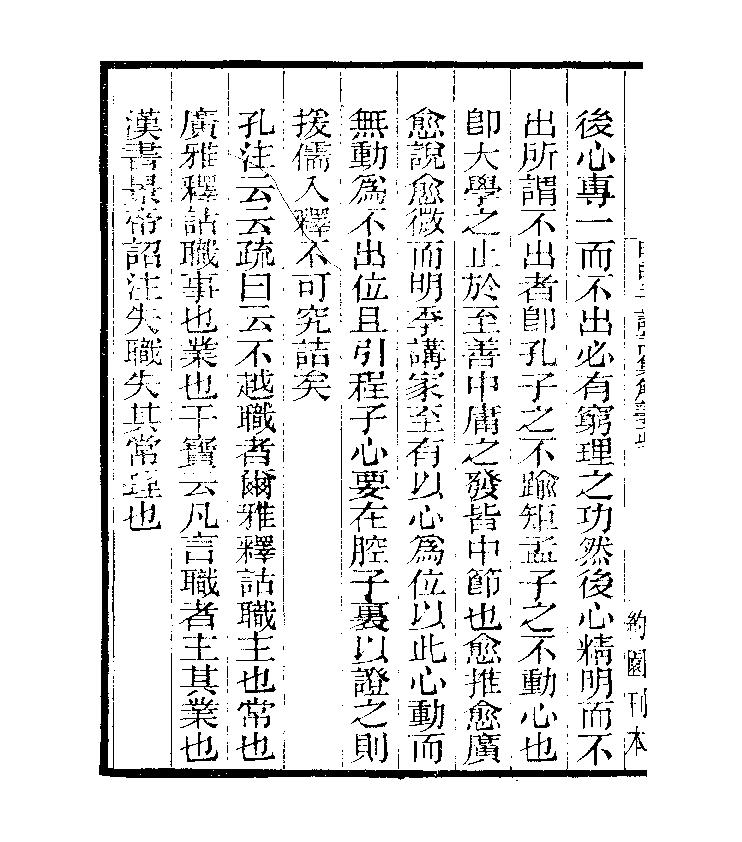 後心專一而不出必有窮理之功然後心精明而不
出所謂不出者卽孔子之不踰矩孟子之不動心也
卽大學之止於至善中庸之發皆中節也愈推愈廣
愈說愈微而明季講家至有以心爲位以此心動而
無動爲不出位且引程子心要在腔子裏以證之則
援儒入釋不可究詰矣
孔注云云疏曰云不越職者爾雅釋詁職主也常也
廣雅釋詁職事也業也干寶云凡言職者主其業也
漢書景帝詔注失職失其常也
約園刊本